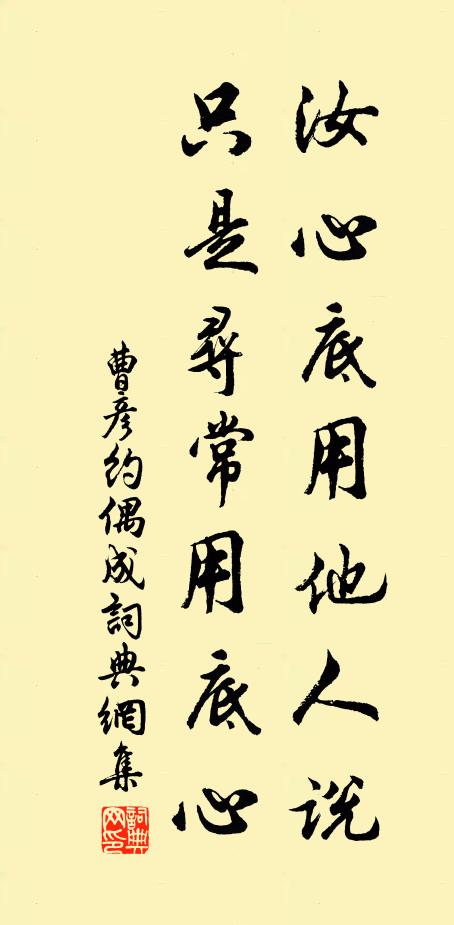 汝心底用他人説
只是尋常用底心
曹彦約偶成詞典網集
詞典网印